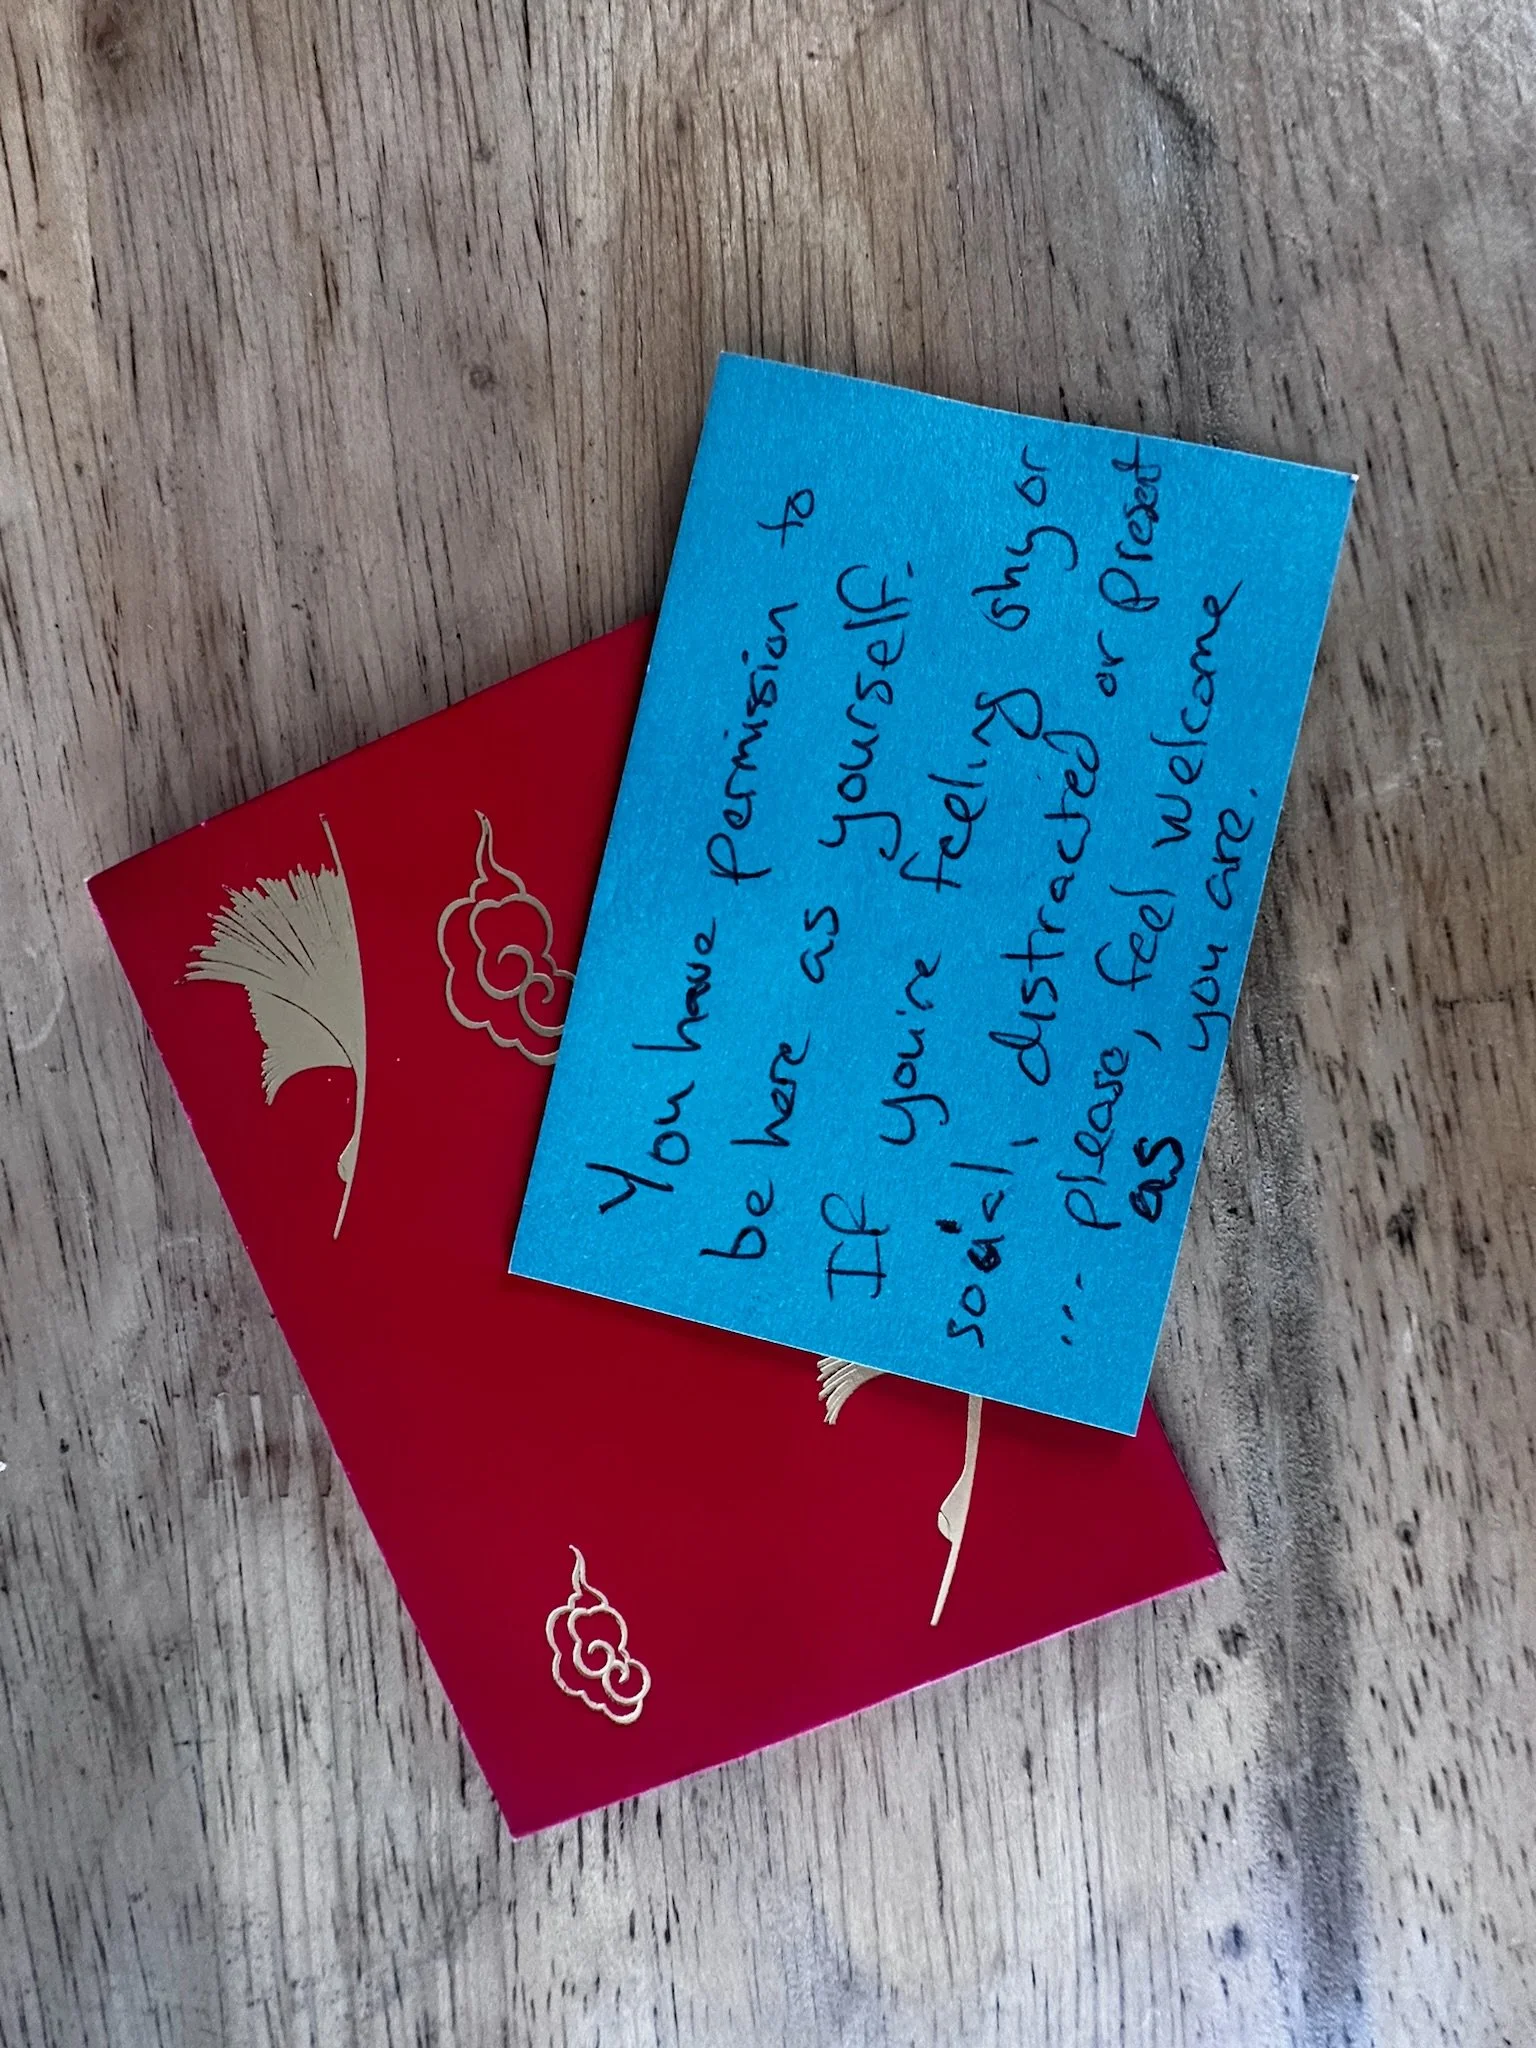 You have Permission to
be here as yourself.
If you're feeling shy or
social, distracted or Present
... Please, feel welcome
as you are.